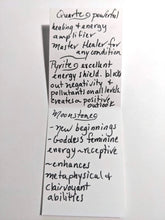 Quartz powerful
healing & energy
amplifier
Master Healer for
any condition
Pyrite excellent
energy shield. blocks
out negativity &
pollutants on all levels
creates a positive
outlook
Moonstone
- new beginnings
- Goddess feminine
energy ~ receptive
~ enhances
metaphysical &
clairvoyant
abilities